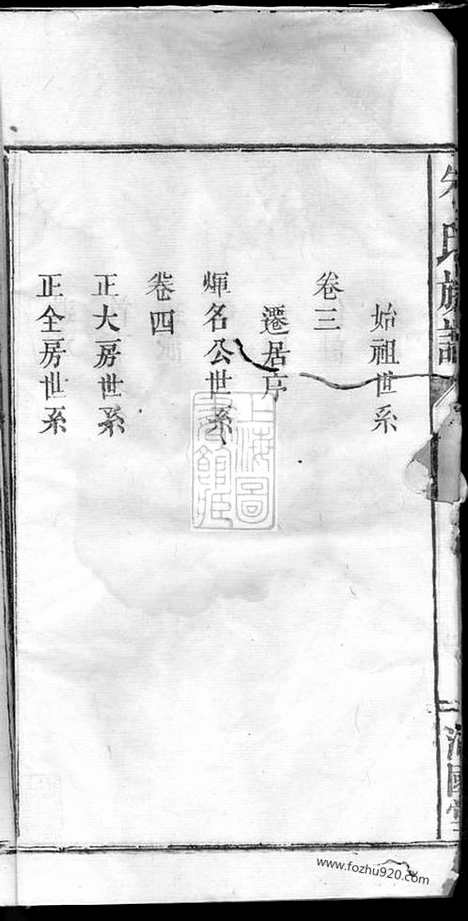 氏族譜
始祖世系
卷三
遷居序
煇名公世系
卷四
正大房世系
正全房世系
上海圖
書館藏
www.fozhu920.com